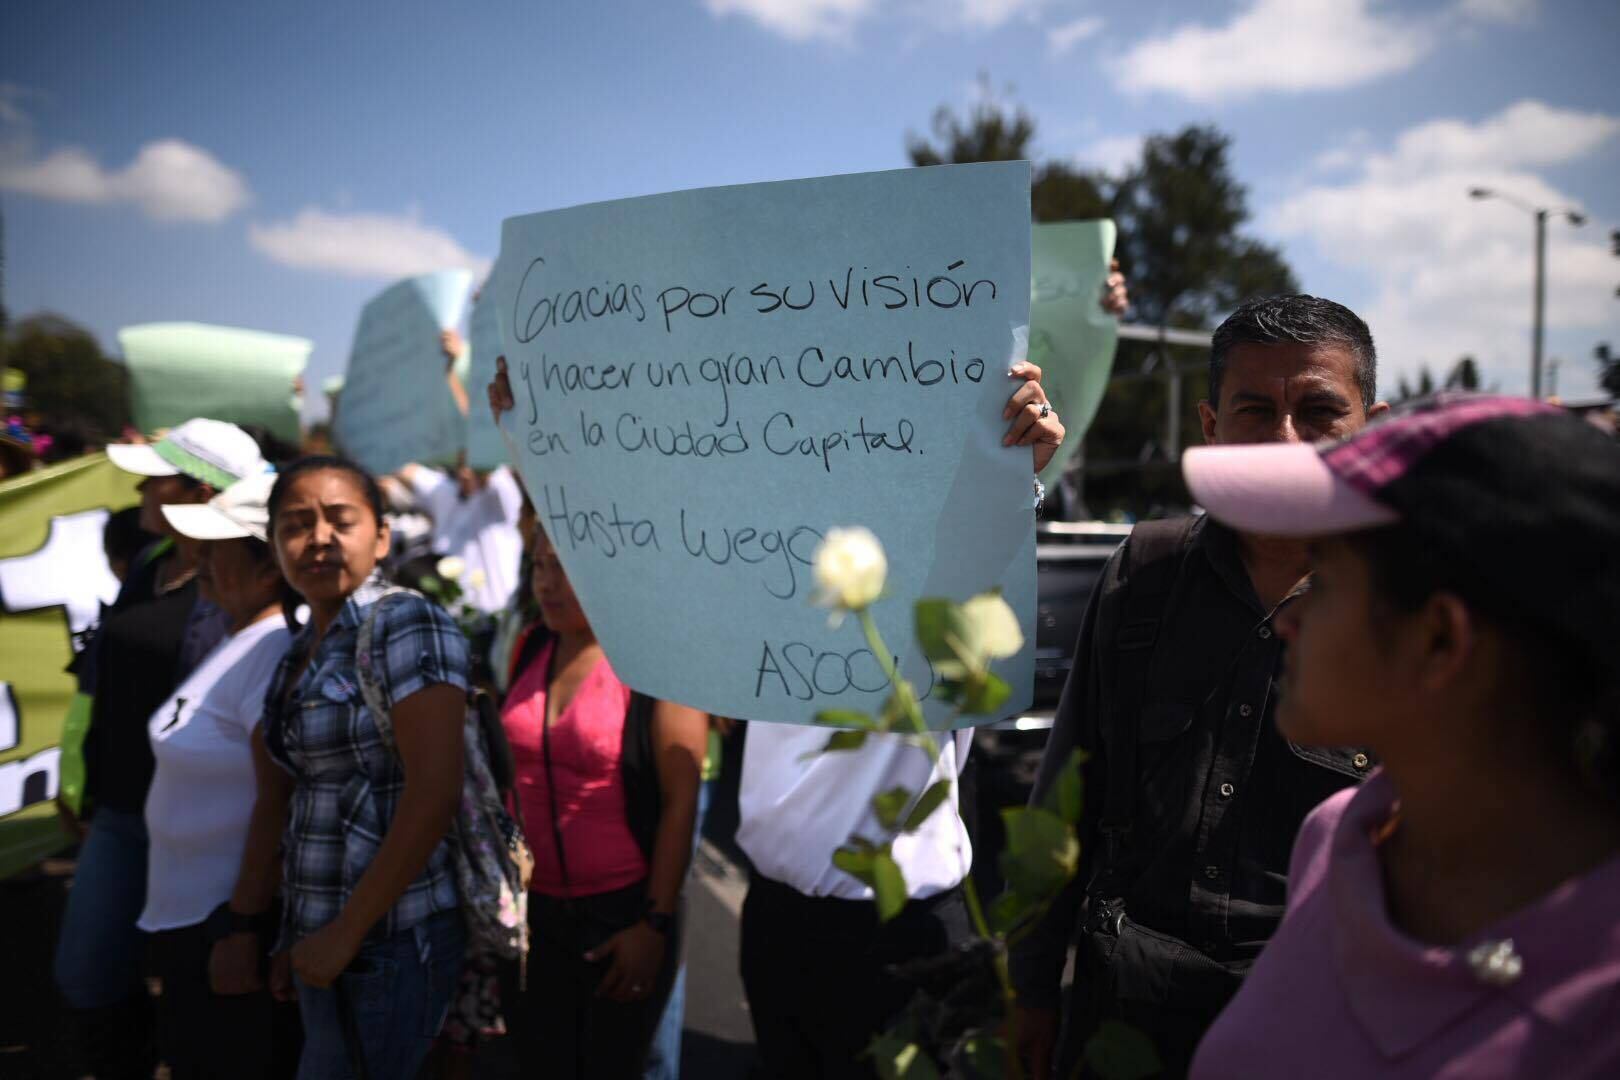 Gracias por su visión
y hacer un gran cambio
en la Ciudad Capital.
Hasta luego